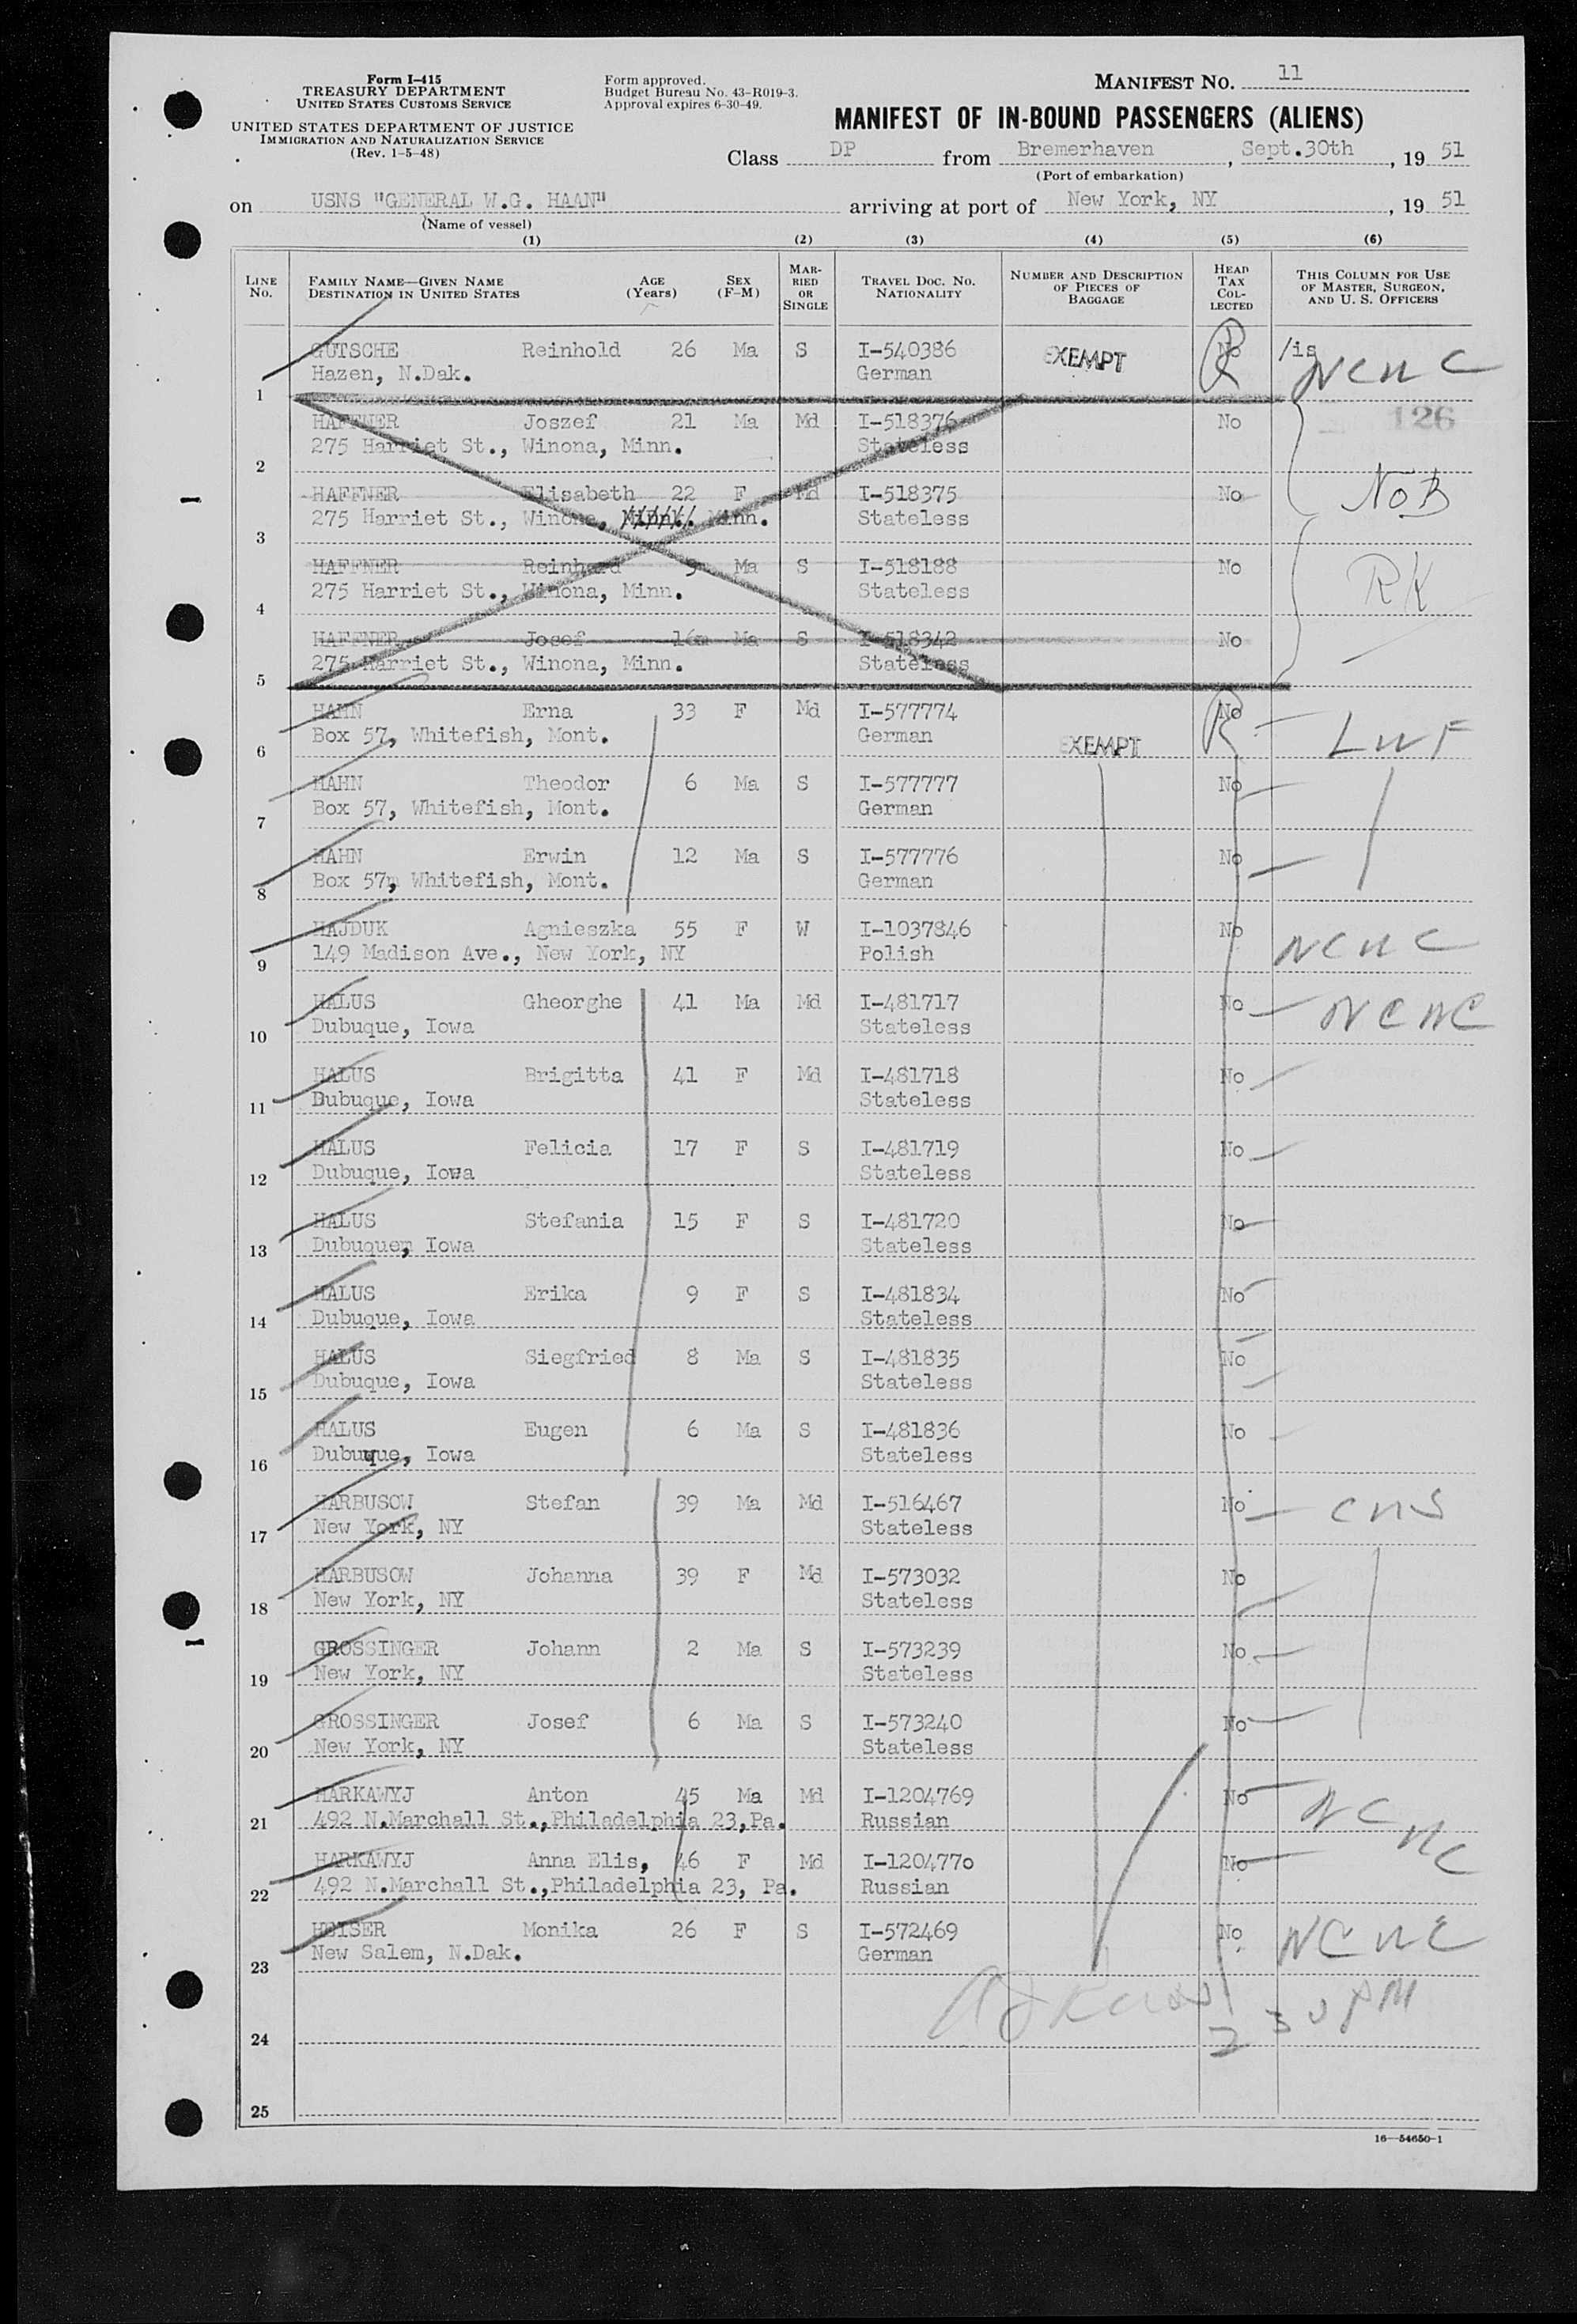 Form I-415
TREASURY DEPARTMENT
UNITED STATES CUSTOMS SERVICE
UNITED STATES DEPARTMENT OF JUSTICE
IMMIGRATION AND NATURALIZATION SERVICE
(Rev. 1-5-48)
Form approved.
Budget Bureau No. 43-R019-3.
Approval expires 6-30-49.
MANIFEST NO. 11
MANIFEST OF IN-BOUND PASSENGERS (ALIENS)
Class DP from Bremerhaven, Sept.30th, 19 51
(Port of embarkation)
on USNS "GENERAL W.G. HAAN" arriving at port of New York, NY, 19 51
(Name of vessel)
(1) (2) (3) (4) (5) (6)
LINE No. FAMILY NAME—GIVEN NAME DESTINATION IN UNITED STATES AGE (Years) SEX (F-M) MARRIED OR SINGLE TRAVEL DOC. NO. NATIONALITY NUMBER AND DESCRIPTION OF PIECES OF BAGGAGE HEAD TAX COLLECTED THIS COLUMN FOR USE OF MASTER, SURGEON, AND U. S. OFFICERS
GUTSCHE Reinhold 26 Ma S I-540386 EXEMPT No /is NCNC
1 Hazen, N.Dak. German
HAFFNER Joszef 21 Ma Md I-518376 No 126
2 275 Harriet St., Winona, Minn. Stateless
HAFFNER Elisabeth 22 F Md I-518375 No NOB
3 275 Harriet St., Winona, Minn. Stateless
HAFFNER Reinhard Ma S I-518188 No RK
4 275 Harriet St., Winona, Minn. Stateless
HAFFNER Josef 16m Ma S I-518342 No
5 275 Harriet St., Winona, Minn. Stateless
HAHN Erna 33 F Md I-577774 No LWF
6 Box 57, Whitefish, Mont. German EXEMPT
HAHN Theodor 6 Ma S I-577777 No
7 Box 57, Whitefish, Mont. German
HAHN Erwin 12 Ma S I-577776 No
8 Box 57, Whitefish, Mont. German
HAJDUK Agnieszka 55 F W I-1037846 No NCNC
9 149 Madison Ave., New York, NY Polish
HALUS Gheorghe 41 Ma Md I-481717 No NCNC
10 Dubuque, Iowa Stateless
HALUS Brigitta 41 F Md I-481718 No
11 Dubuque, Iowa Stateless
HALUS Felicia 17 F S I-481719 No
12 Dubuque, Iowa Stateless
HALUS Stefania 15 F S I-481720 No
13 Dubuque, Iowa Stateless
HALUS Erika 9 F S I-481834 No
14 Dubuque, Iowa Stateless
HALUS Siegfried 8 Ma S I-481835 No
15 Dubuque, Iowa Stateless
HALUS Eugen 6 Ma S I-481836 No
16 Dubuque, Iowa Stateless
HARBUSOW Stefan 39 Ma Md I-516467 No CNS
17 New York, NY Stateless
HARBUSOW Johanna 39 F Md I-573032 No
18 New York, NY Stateless
GROSSINGER Johann 2 Ma S I-573239 No
19 New York, NY Stateless
GROSSINGER Josef 6 Ma S I-573240 No
20 New York, NY Stateless
HARKAWYJ Anton 45 Ma Md I-1204769 No NCNC
21 492 N.Marchall St.,Philadelphia 23,Pa. Russian
HARKAWYJ Anna Elis, 46 F Md I-120477o No
22 492 N.Marchall St.,Philadelphia 23, Pa. Russian
HEISER Monika 26 F S I-572469 No NCNC
23 New Salem, N.Dak. German
24 2 30 PM
25
16—54650-1